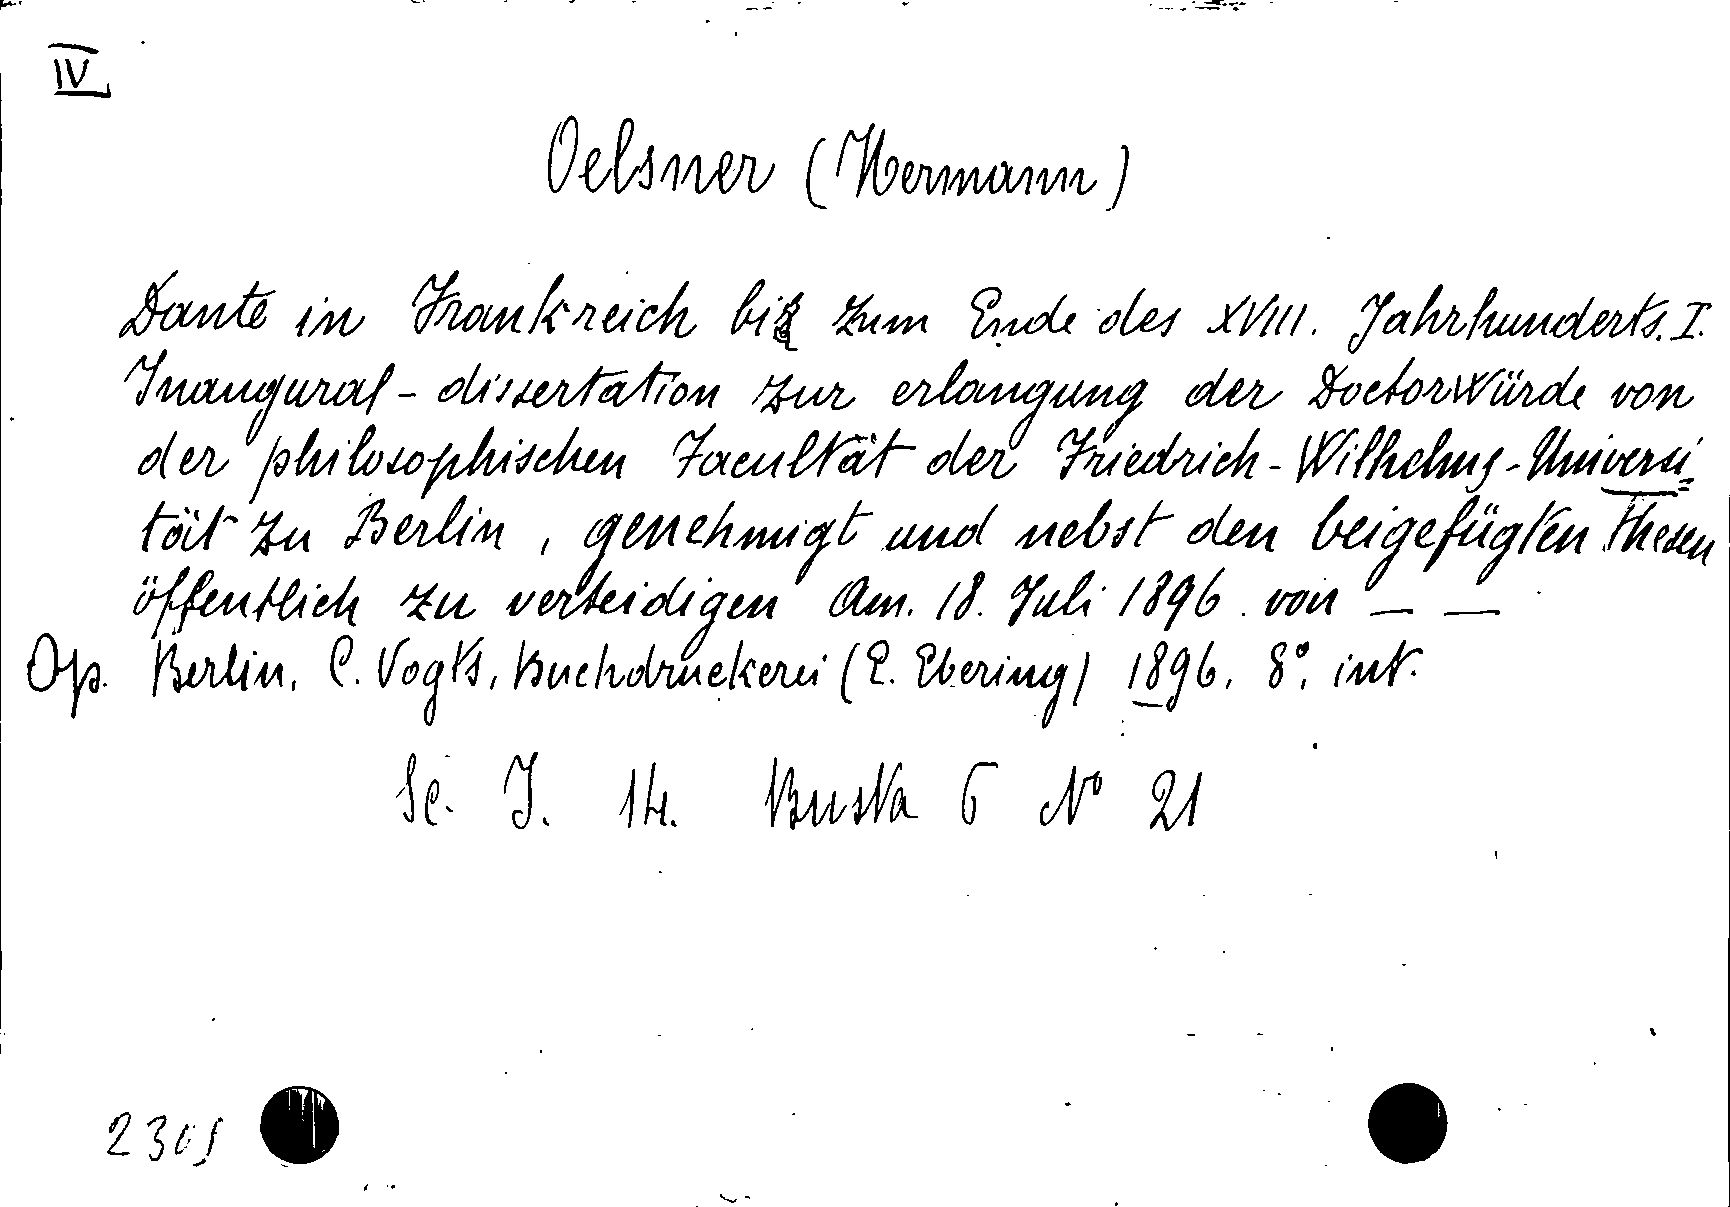 IV
Oelsner (Hermann)
Dante in Frankreich bis zum Ende des XVIII. Jahrhunderts. I.
Inaugural-dissertation zur erlangung der Doctorwürde von
der philosophischen Facultät der Friedrich-Wilhelms-Universi
tät zu Berlin, genehmigt und nebst den beigefügten Thesen
öffentlich zu verteidigen Am. 18. Juli 1896. von — —
Op. Berlin, C. Vogts, Buchdruckerei (E. Ebering) 1896. 8°. int.
Sc. I. 14. Busta 6 N° 21